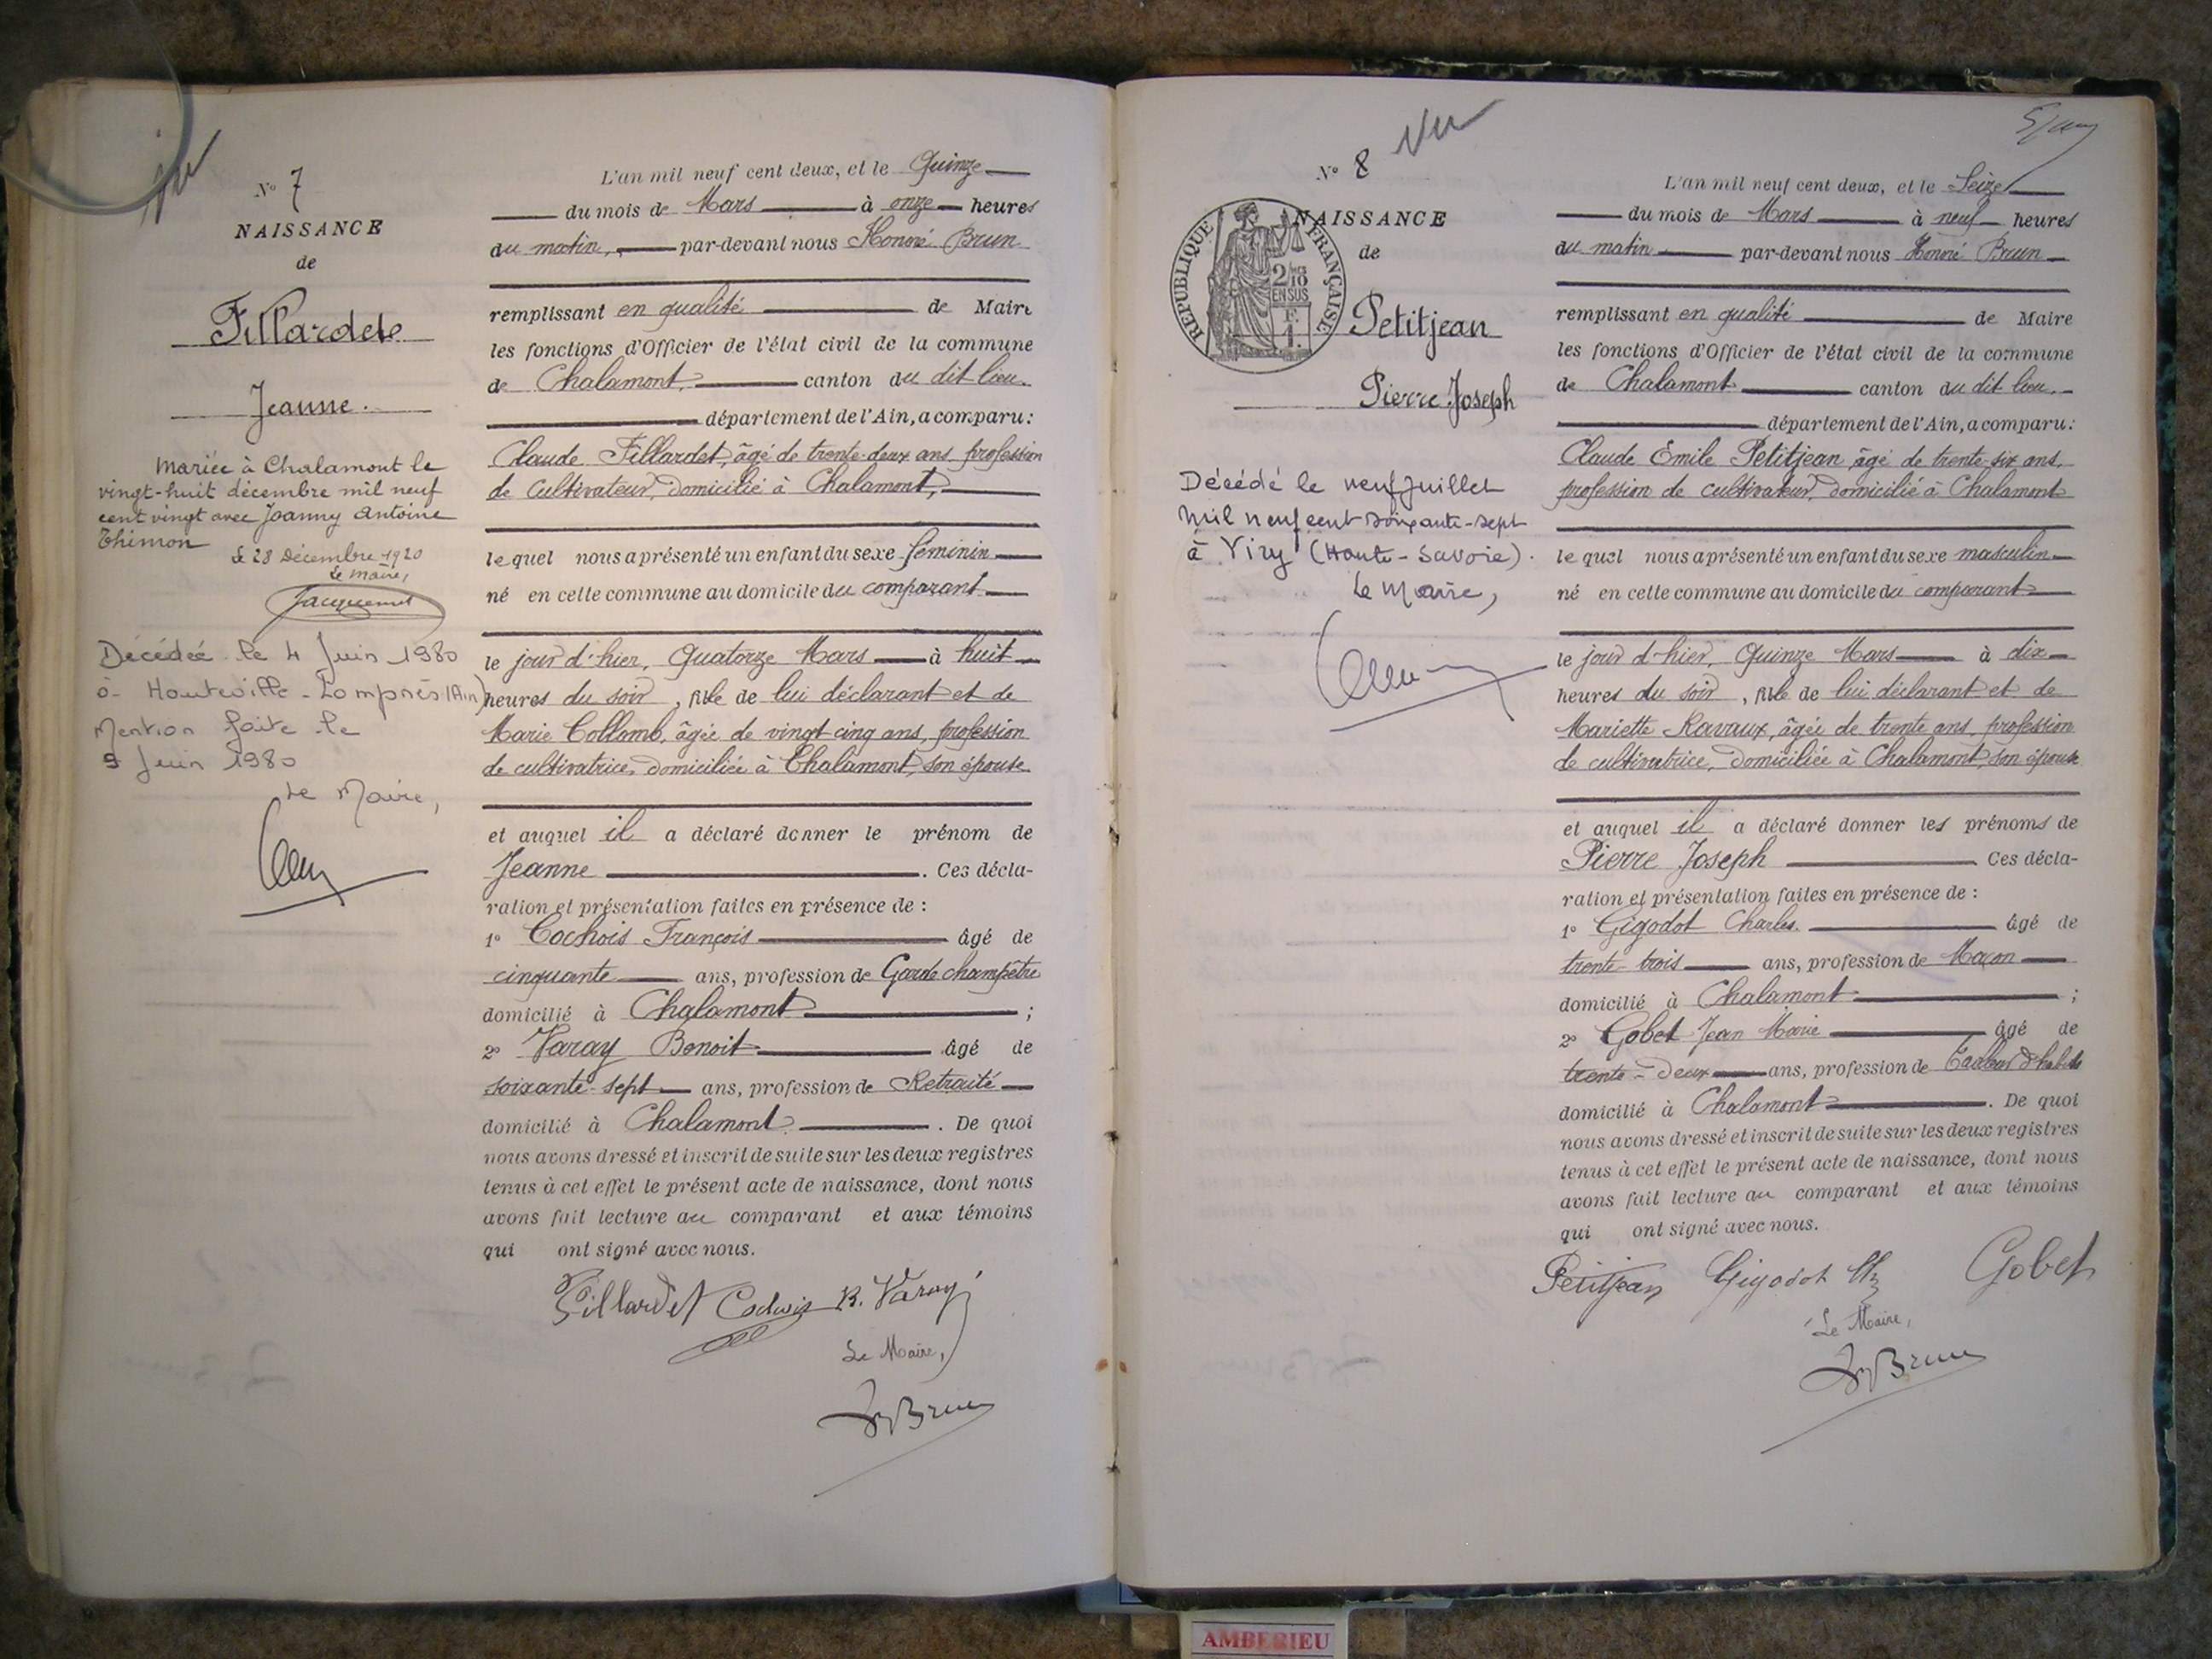 Vu
N° 7
NAISSANCE
de
Fillardet
Jeanne.
Mariée à Chalamont le
vingt-huit décembre mil neuf
cent vingt avec Joanny Antoine
Thimon
Le 28 Décembre 1920
Le Maire,
Jacquemet
Décédée le 4 Juin 1980
à Hauteville-Lompnes (Ain)
Mention faite le
9 Juin 1980
Le Maire,
L'an mil neuf cent deux, et le Quinze
du mois de Mars à onze heures
du matin, par-devant nous Honoré Brun
remplissant en qualité de Maire
les fonctions d'Officier de l'état civil de la commune
de Chalamont, canton du dit lieu.
département de l'Ain, a comparu:
Claude Fillardet, âgé de trente-deux ans, profession
de Cultivateur, domicilié à Chalamont,
lequel nous a présenté un enfant du sexe féminin
né en cette commune au domicile du comparant
le jour d'hier, Quatorze Mars à huit
heures du soir, fille de lui déclarant et de
Marie Collomb, âgée de vingt cinq ans, profession
de cultivatrice, domiciliée à Chalamont, son épouse
et auquel il a déclaré donner le prénom de
Jeanne. Ces décla-
ration et présentation faites en présence de :
1° Cochois François âgé de
cinquante ans, profession de Garde champêtre
domicilié à Chalamont ;
2° Varay Benoit âgé de
soixante-sept ans, profession de Retraité
domicilié à Chalamont. De quoi
nous avons dressé et inscrit de suite sur les deux registres
tenus à cet effet le présent acte de naissance, dont nous
avons fait lecture au comparant et aux témoins
qui ont signé avec nous.
Fillardet Cochois B. Varay
Le Maire,
Hré Brun
Vu
N° 8
NAISSANCE
de
REPUBLIQUE FRANÇAISE
2/10
EN SUS
Petitjean
Pierre Joseph
Décédé le neuf Juillet
mil neuf cent soixante-sept
à Viry (Haute-Savoie).
Le Maire,
L'an mil neuf cent deux, et le Seize
du mois de Mars à neuf heures
du matin par-devant nous Honoré Brun
remplissant en qualité de Maire
les fonctions d'Officier de l'état civil de la commune
de Chalamont canton du dit lieu.
département de l'Ain, a comparu:
Claude Emile Petitjean âgé de trente-six ans,
profession de cultivateur, domicilié à Chalamont
lequel nous a présenté un enfant du sexe masculin
né en cette commune au domicile du comparant
le jour d'hier, Quinze Mars à dix
heures du soir, fils de lui déclarant et de
Mariette Ravaux, âgée de trente ans, profession
de cultivatrice, domiciliée à Chalamont, son épouse
et auquel il a déclaré donner les prénoms de
Pierre Joseph Ces décla-
ration et présentation faites en présence de :
1° Gigodot Charles. âgé de
trente-trois ans, profession de Maçon
domicilié à Chalamont ;
2° Gobet Jean Marie âgé de
trente-deux ans, profession de Tailleur d'habits
domicilié à Chalamont. De quoi
nous avons dressé et inscrit de suite sur les deux registres
tenus à cet effet le présent acte de naissance, dont nous
avons fait lecture au comparant et aux témoins
qui ont signé avec nous.
Petitjean Gigodot Ch Gobet
Le Maire,
Hré Brun
AMBERIEU